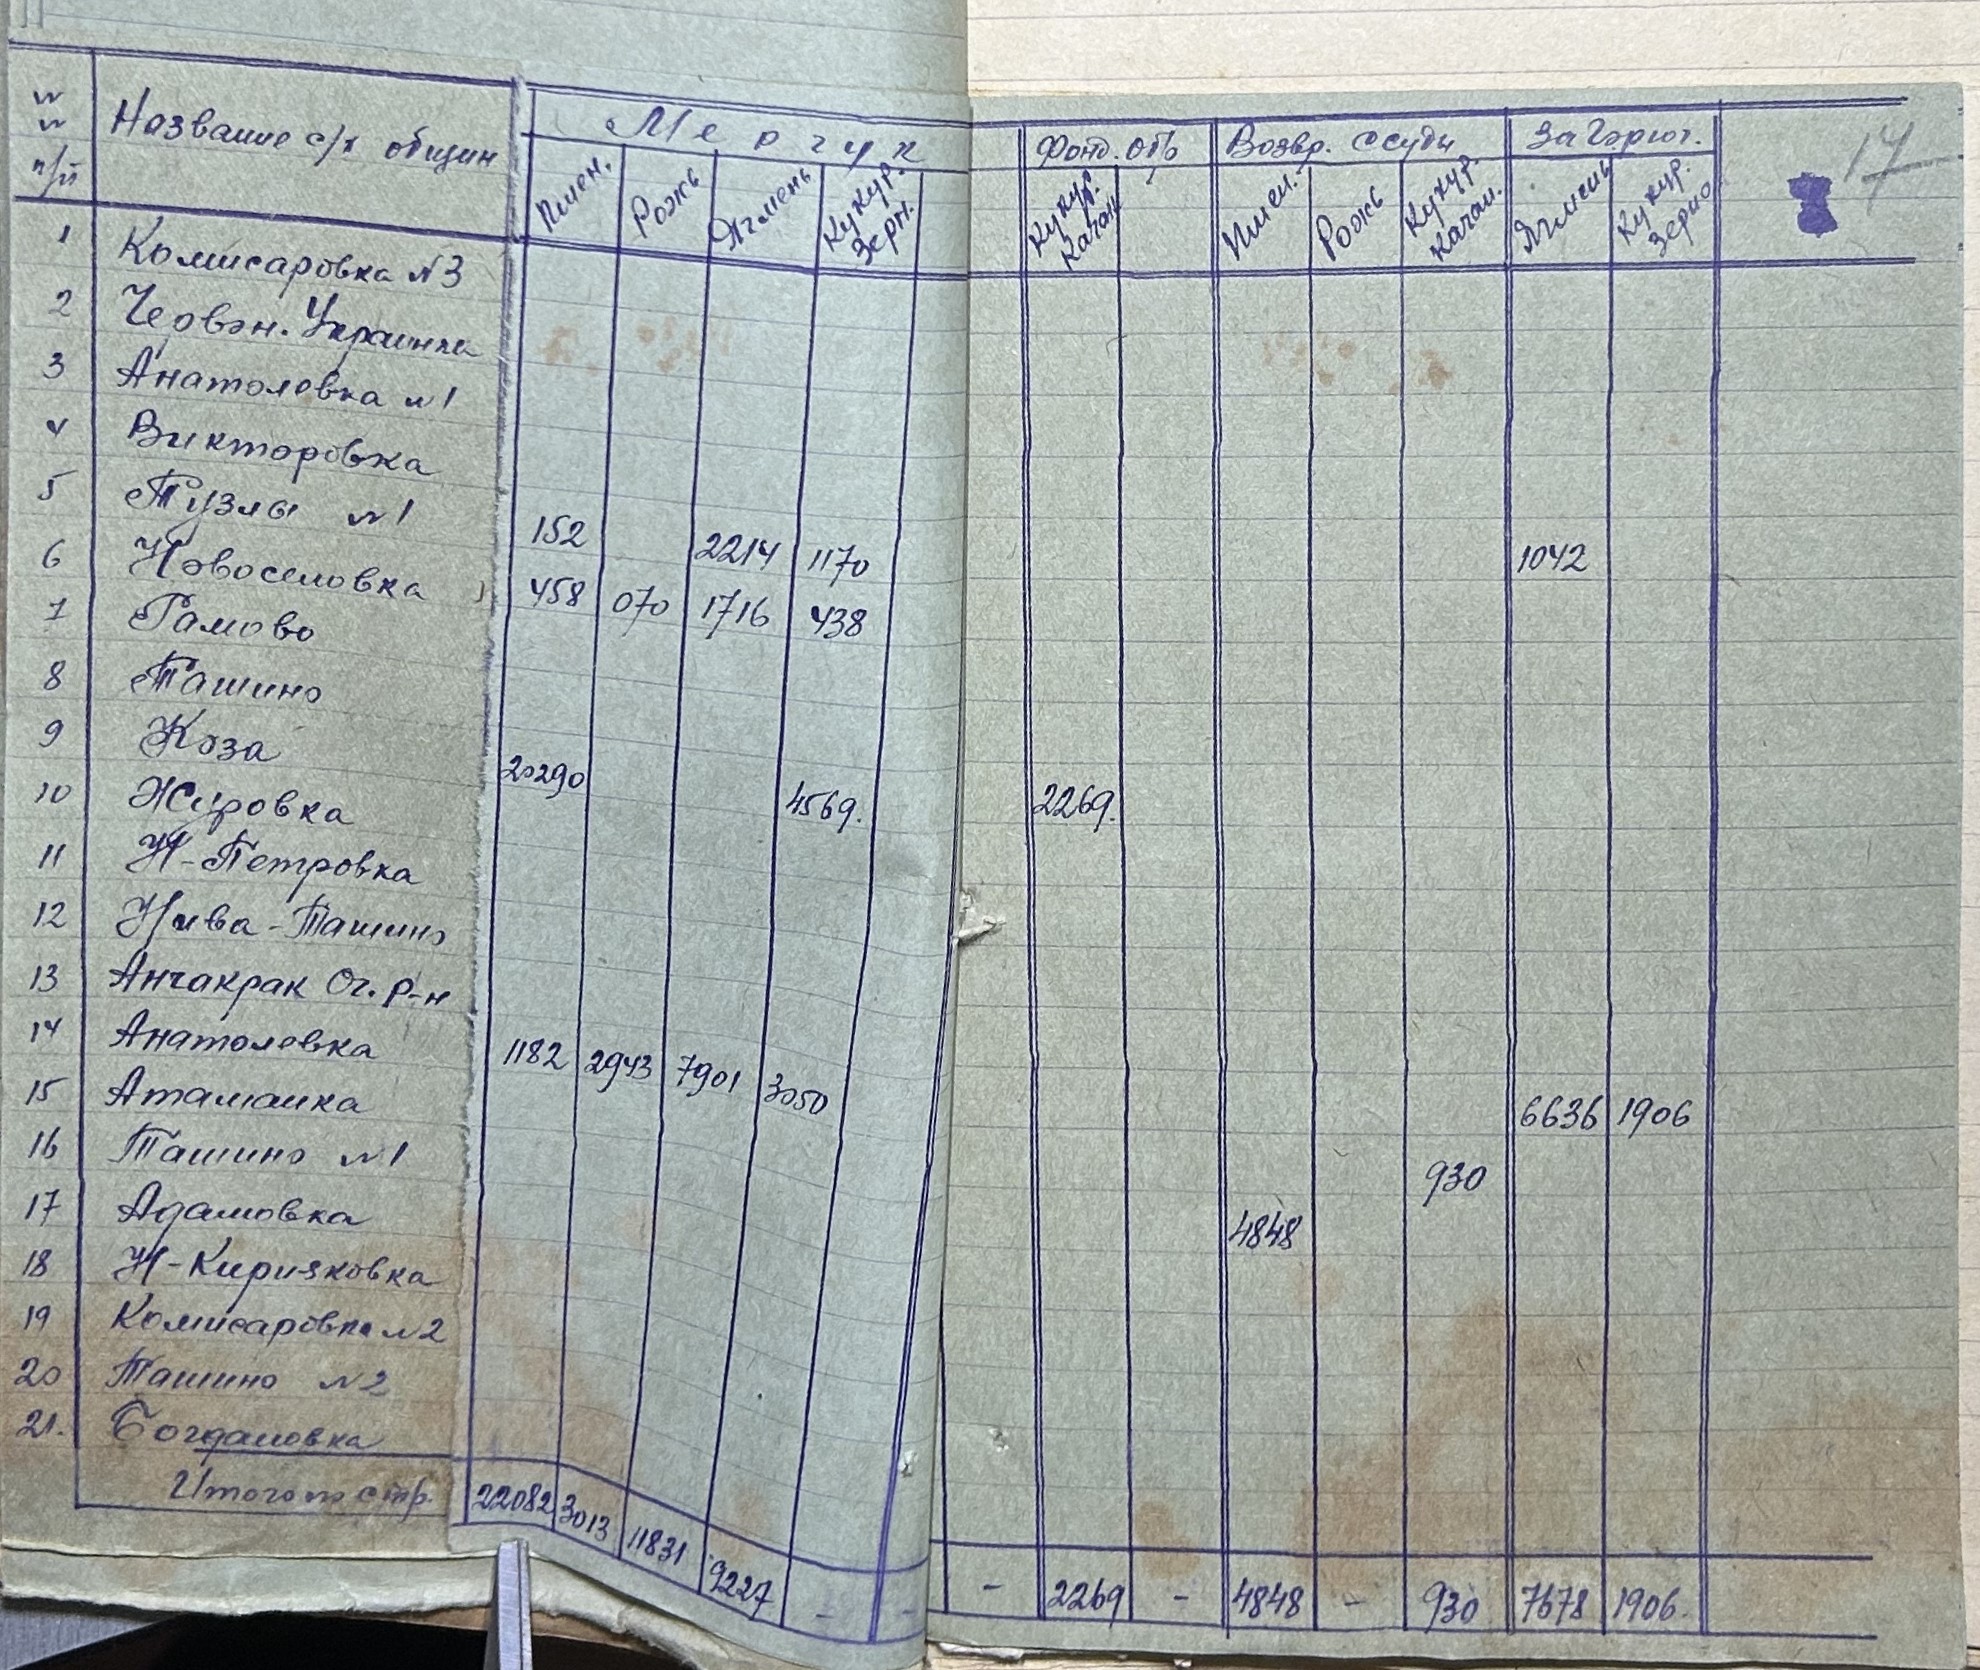 17
№№ п/п Название с/х общин Мергук Фонд. отд Возвр. ссуды За Гарног.
Пшен. Рожь Ячмень Кукур. зерн. Кукур. качан Пшен. Рожь Кукур. качан. Ячмень Кукур. зерно
1 Комисаровка №3
2 Червон. Украинка
3 Анатолевка №1
4 Викторовка
5 Тузлы №1
152 2214 1170 1042
6 Новоселовка
458 070 1716 438
7 Рамово
8 Ташино
9 Коза
20290 4569. 2269.
10 Журовка
11 Н-Петровка
12 Нива-Ташино
13 Анчакрак Оч. р-н
14 Анатолевка
1182 2943 7901 3050 6636 1906
15 Атаманка
930
16 Ташино №1
4848
17 Адамовка
18 Н-Кирияковка
19 Комисаровка №2
20 Ташино №2
21. Богдановка
Итого по стр. 22082 3013 11831 9227 - - - 2269 - 4848 - 930 7678 1906.